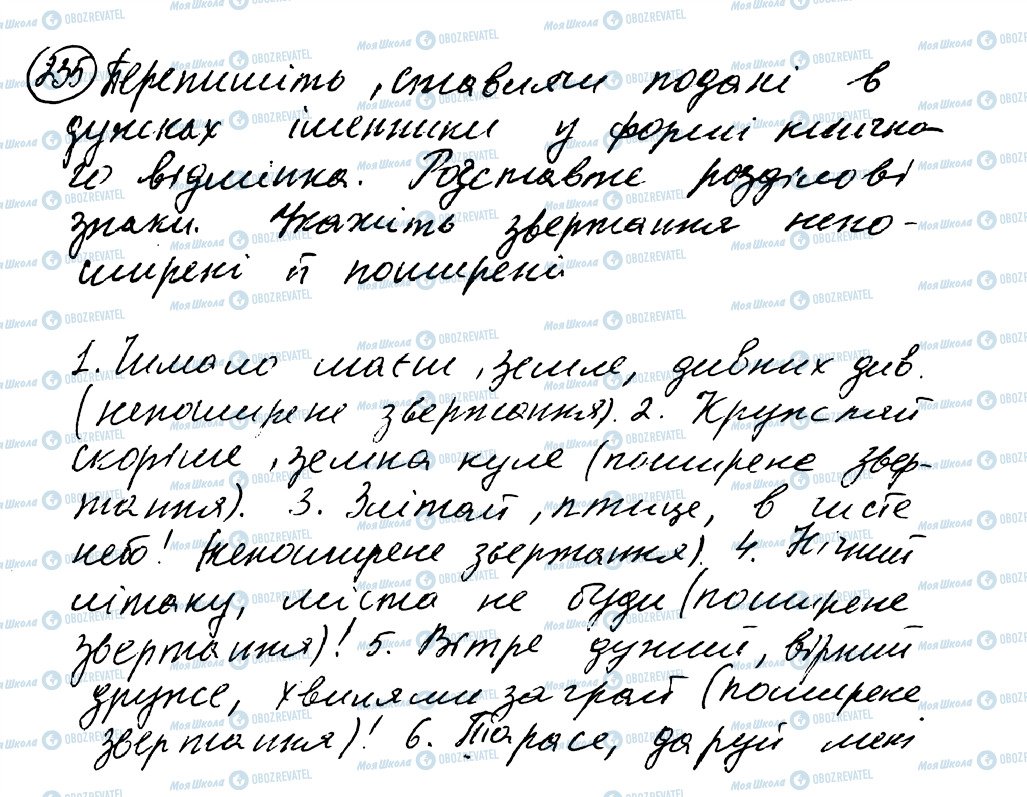 235 Перепишіть, ставлячи подані в
дужках іменники у формі клично-
го відмінка. Розставте розділові
знаки. Укажіть звертання непо-
ширені й поширені
1. Чимало маєш, земле, дивних див.
(непоширене звертання). 2. Кружляй
скоріше, земна куле (поширене звер-
тання). 3. Злітай, птице, в чисте
небо! (непоширене звертання). 4. Нічний
літаку, міста не буди (поширене
звертання)! 5. Вітре дужий, вірний
друже, хвилями заграй (поширене
звертання)! 6. Тарасе, даруй мені